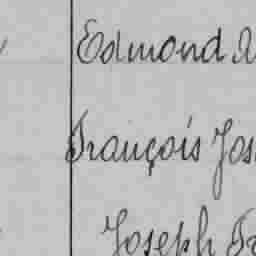 Edmond
François Jos
Joseph